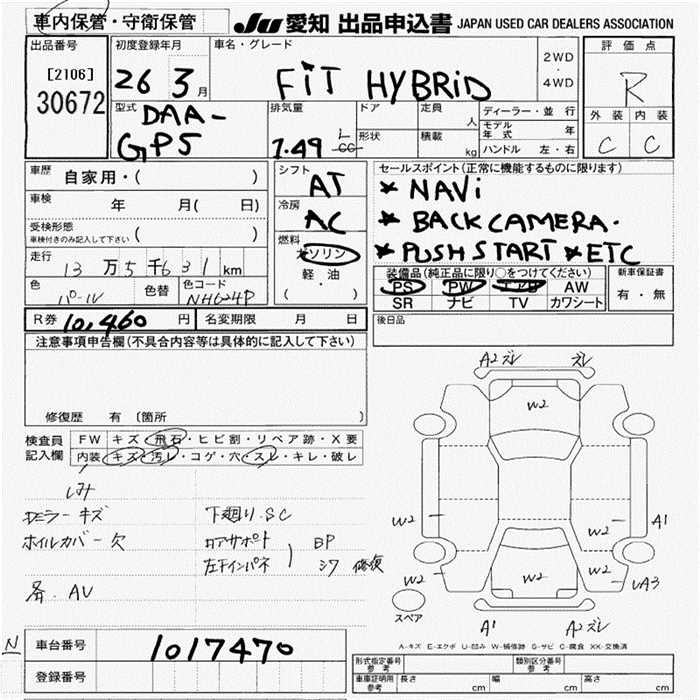 車内保管・守衛保管
JU 愛知 出品申込書 JAPAN USED CAR DEALERS ASSOCIATION
出品番号 初度登録年月 車名・グレード 評価点
[2106]
30672
26 年 3 月
FiT HYBRiD
2WD
・
4WD
R
型式 排気量 ドア 定員 人 ディーラー・並行 外装 内装
DAA-
GP5
1.49 L cc
形状 積載 kg モデル年式 年
ハンドル 左・右
C C
車歴 自家用・( )
シフト AT
セールスポイント(正常に機能するものに限ります)
* NAVi
* BACK CAMERA.
* PUSH START * ETC
車検 年 月( 日)
冷房 AC
受検形態
車検付きのみ記入して下さい ( )
燃料 ガソリン
軽・油
( )
走行 13万5千631km
装備品(純正品に限り○をつけてください) 新車保証書
PS PW エアB AW 有・無
SR ナビ TV カワシート
色 パール 色替 色コード NH624P
R券 10,460 円 名変期限 月 日
後日品
注意事項申告欄(不具合内容等は具体的に記入して下さい)
修復歴 有 〔箇所
検査員
記入欄
FW キズ・飛石・ヒビ割・リペア跡・X要
内装 キズ・汚レ・コゲ・穴・スレ・キレ・破レ
シミ
Dミラーキズ
ホイルカバー欠
下廻り.SC
コアサポート
左インパネ
BP
シワ 修復
AV
A2ズレ ズレ
W2
W2
W2
A1
W2
W2
W2
UA3
スペア
A1
A2ズレ
A-キズ E-エクボ U-凹み W-補修跡 S-サビ C-腐食 XX-交換済
N
車台番号 1017470
登録番号
形式指定番号
参考
類別区分番号
参考
車庫証明用
参考
長さ cm 幅 cm 高さ cm